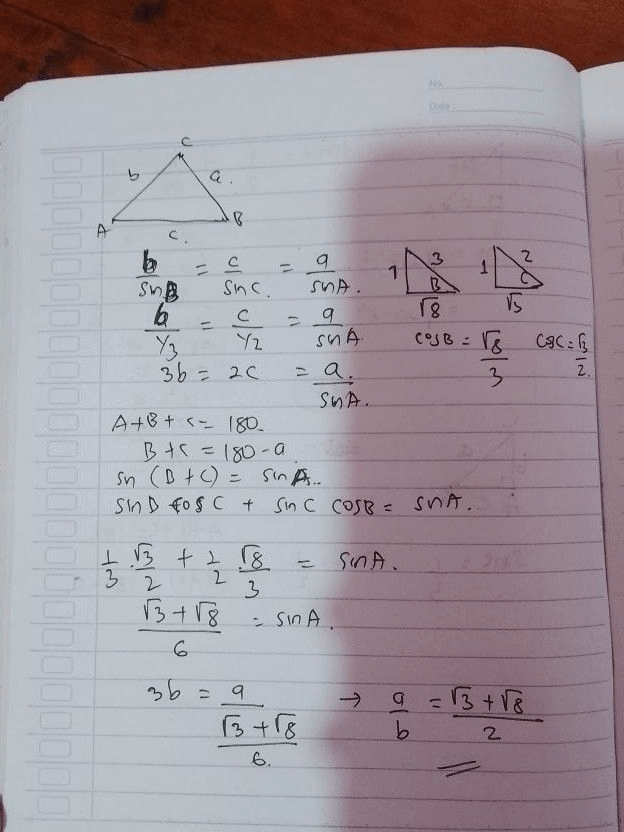 No.
Date:
C
b a.
A B
c.
b/sin B = c/sin C. = a/sin A.
1 3 B √8
1 2 C √3
b/1/3 = c/1/2 = a/sin A
cos B = √8/3 cos C = √3/2.
3b = 2c = a./sin A.
A+B+c = 180.
B+c = 180-a
sin (B+C) = sin A..
sin B cos C + sin C cos B = sin A.
1/3 . √3/2 + 1/2 . √8/3 = sin A.
√3+√8/6 = sin A.
3b = a/√3+√8/6. → a/b = √3+√8/2